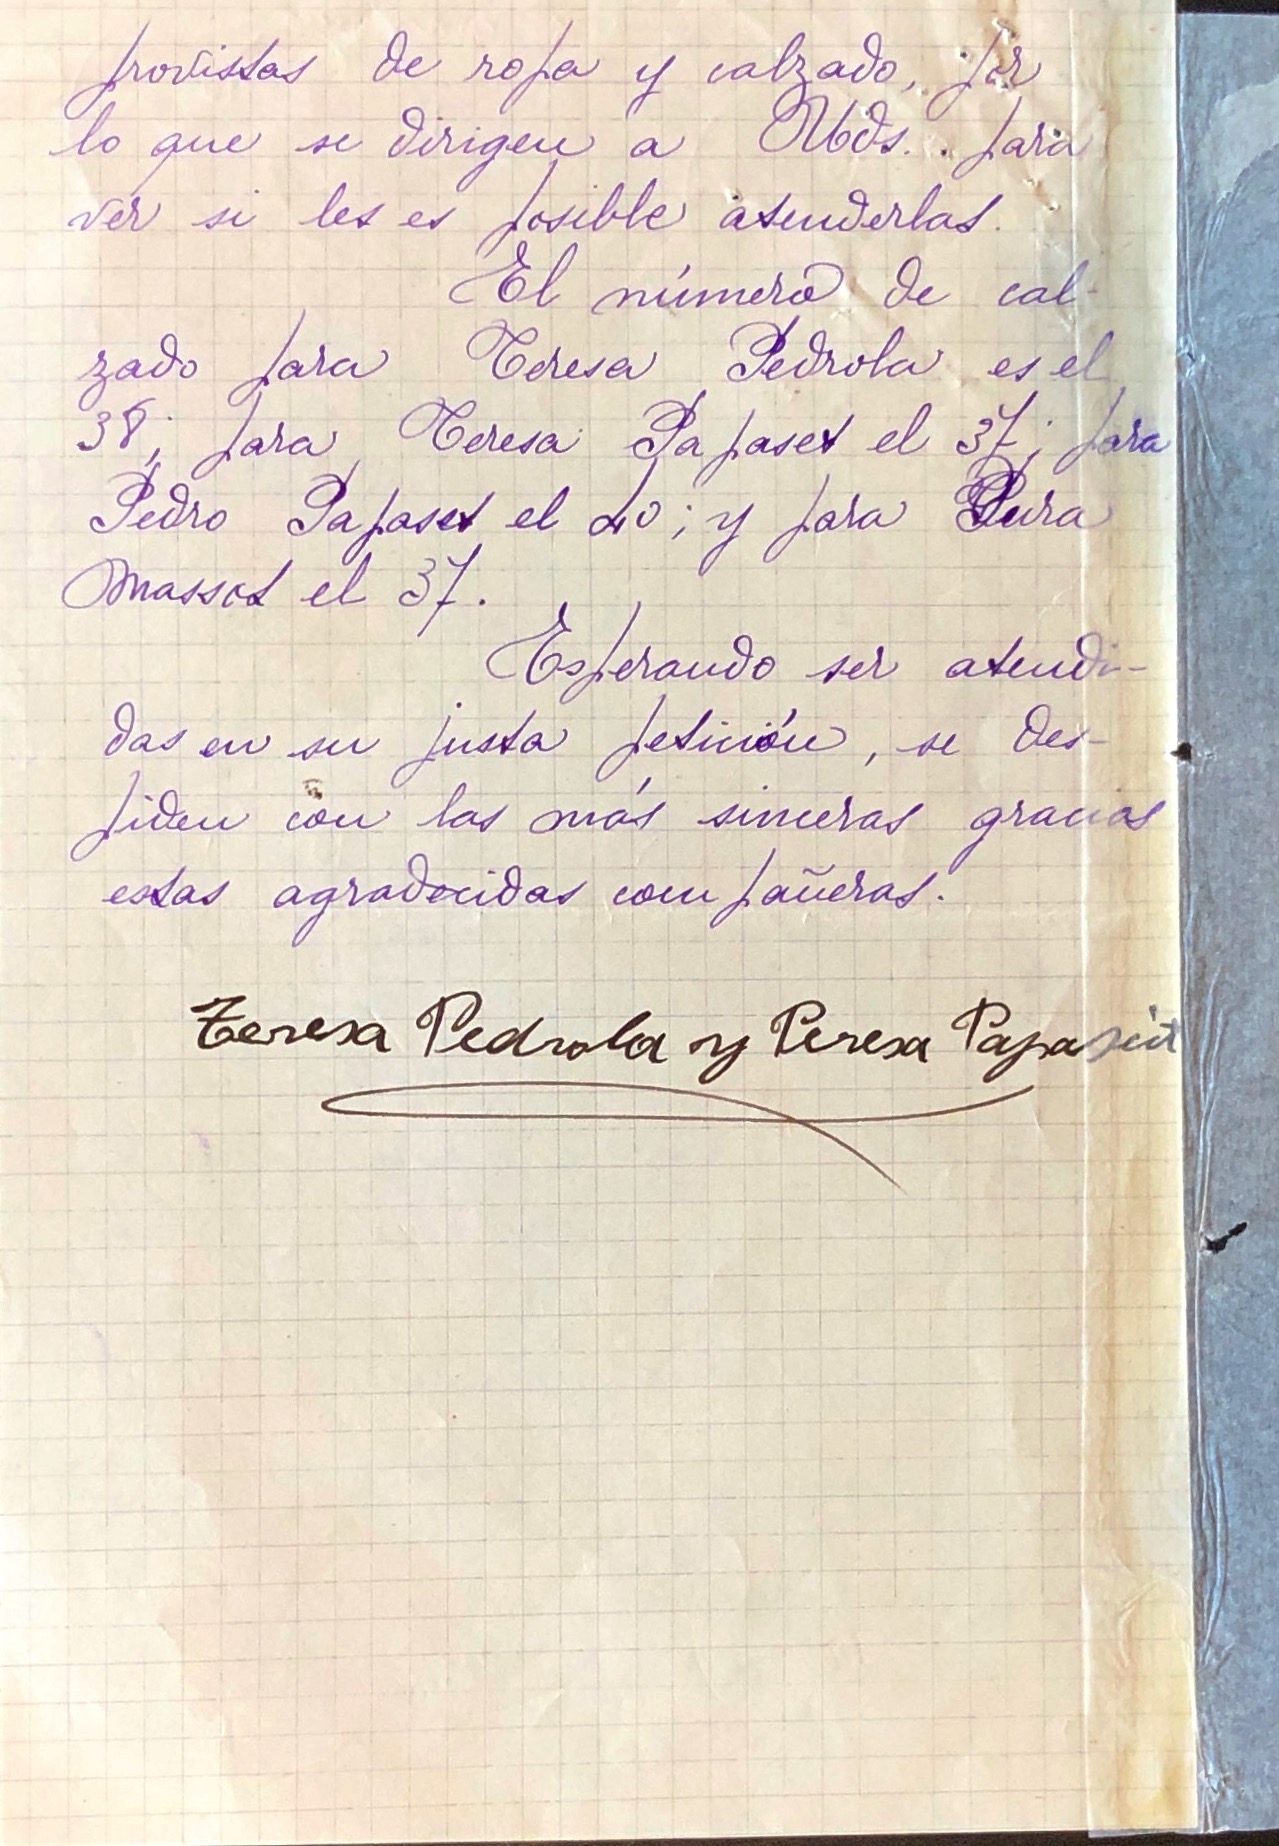 provistas de ropa y calzado, por
lo que se dirigen a Uds. para
ver si les es posible atenderlas.
El número de cal-
zado para Teresa Pedrola es el
38; para Teresa Papaset el 37; para
Pedro Papaset el 40; y para Pura
Massot el 37.
Esperando ser atendi-
das en su justa petición, se des-
piden con las más sinceras gracias
estas agradecidas compañeras.
Teresa Pedrola y Teresa Papaseit